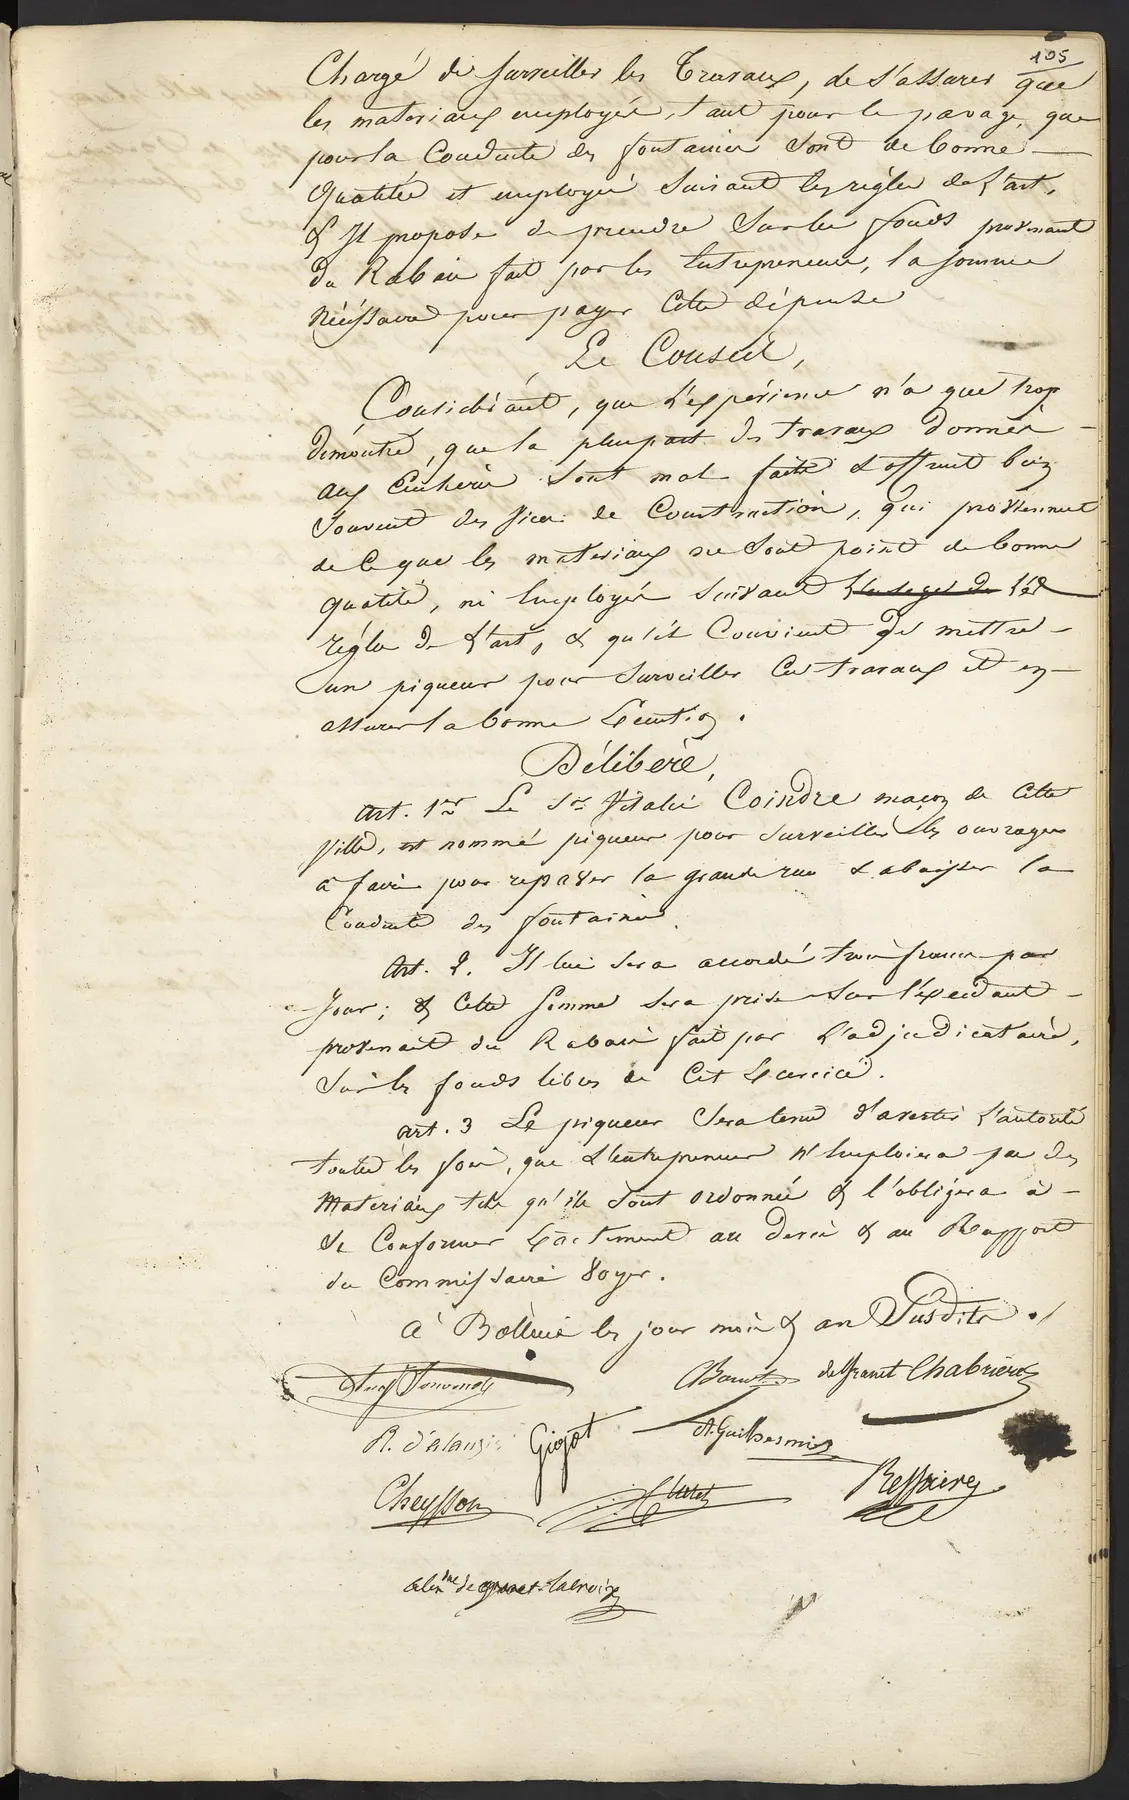 105
Chargé de surveiller les Travaux, de s'assurer que
les materiaux employés, tant pour le pavage, que
pour la Conduite des fontaines sont de bonne
Qualitée et employés suivant les règles de l'art,
& Il propose de prendre sur les fonds provenant
du Rabais fait par les Entrepreneurs, la somme
nécéssaire pour payer Cette dépense
Le Conseil,
Considérant, que l'expérience n'a que trop
démontré, que la pluspart des travaux donnés
aux Enchères sont mal faits & offrent bien
souvent des vices de Construction, qui proviennent
de Ce que les materiaux ne sont point de bonne
qualité, ni Employés suivant l'usage de les
règles de l'art, & qu'il Convient de mettre
un piqueur pour surveiller Ces travaux et en
assurer la bonne Exécution.
Délibère,
art. 1er Le Sr Vitalis Coindre maçon de Cette
Ville, est nommé piqueur pour surveiller les ouvrages
à faire pour repaver la grande rue & abaisser la
Conduite des fontaines.
Art. 2. Il lui sera accordé trois francs par
Jour; & Cette somme sera prise sur l'Excédant
provenant du Rabais fait par l'adjudicataire,
sur les fonds libres de Cet Exercice.
art. 3 Le piqueur sera tenu d'avertir l'autorité
toutes les fois, que l'entrepreneur n'Emploiera pas des
Materiaux tels qu'ils sont ordonnés & l'obligera à
se Conformer Exactement au Devis & au Rapport
du Commissaire Voyer.
à Bollène les jour mois & an Susdits ./
deGranet Chabrières
R. d'alauzier Giojot A. Guilhermis
Cheysson Ressaire
alexdre de granet-Lacroix